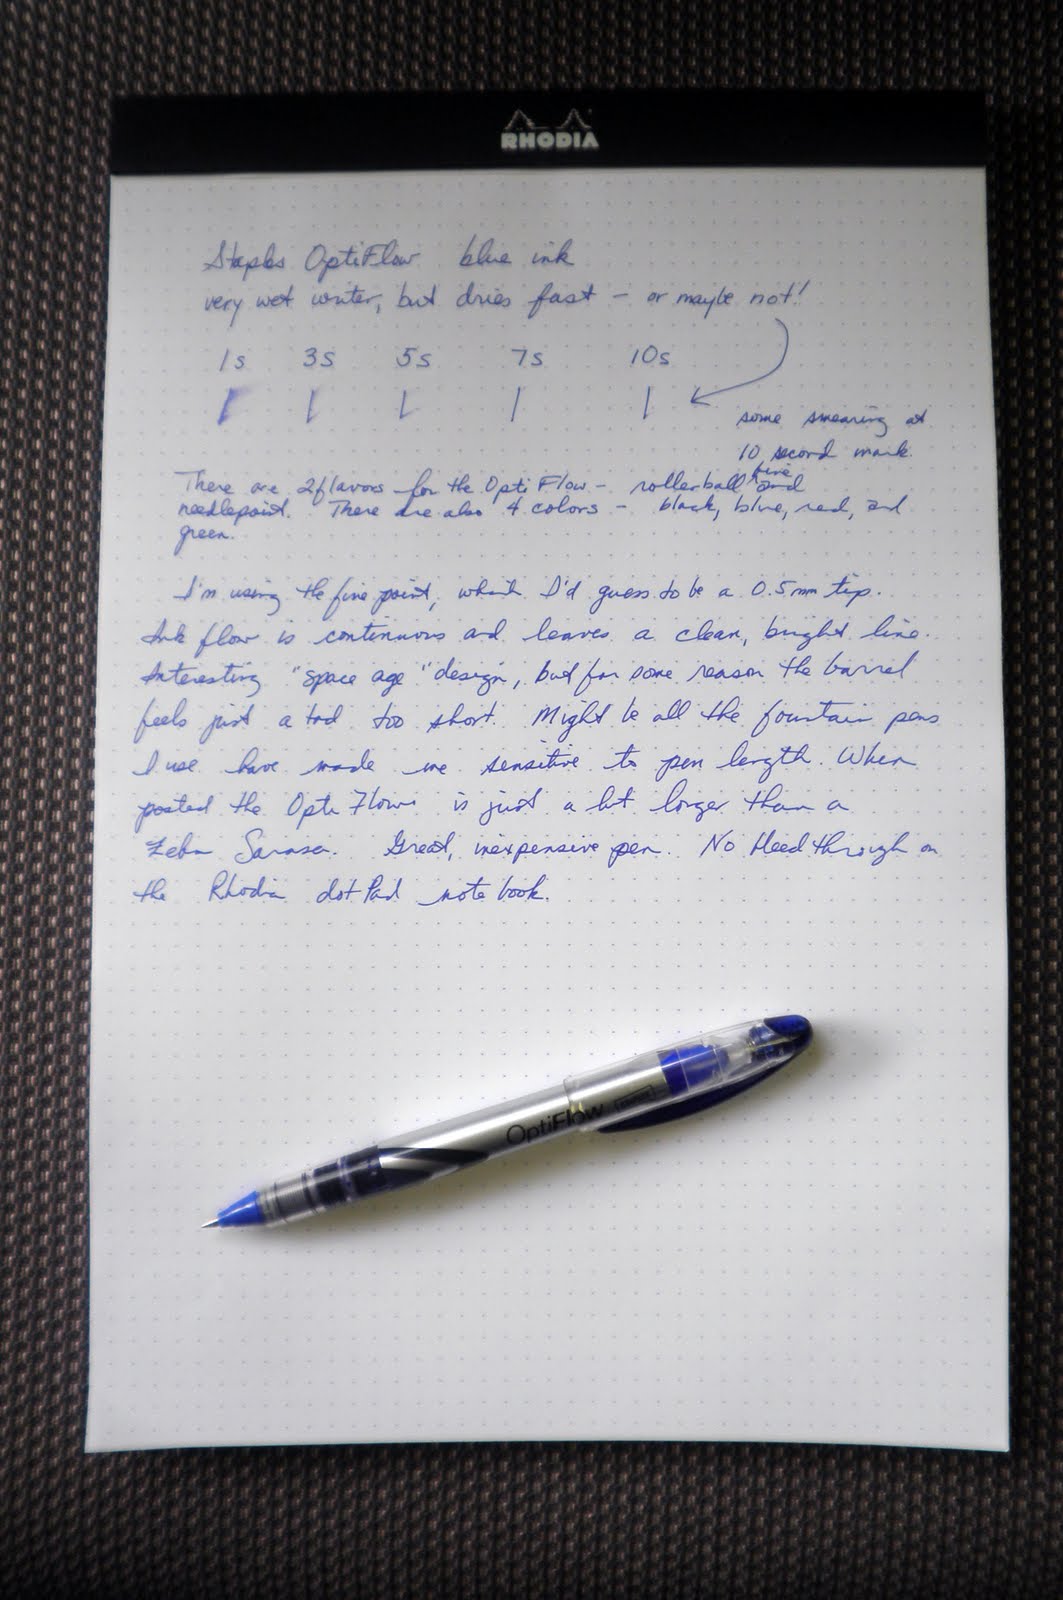 RHODIA
Staples OptiFlow blue ink
very wet writer, but dries fast - or maybe not!
1s 3s 5s 7s 10s
some smearing at
10 second mark.
There are 2 flavors for the OptiFlow - rollerball fine and
needlepoint. There are also 4 colors - black, blue, red, and
green.
I'm using the fine point, which I'd guess to be a 0.5mm tip.
Ink flow is continuous and leaves a clean, bright line.
Interesting "space age" design, but for some reason the barrel
feels just a tad too short. Might be all the fountain pens
I use have made me sensitive to pen length. When
posted the OptiFlow is just a bit longer than a
Zebra Sarasa. Great, inexpensive pen. No bleedthrough on
the Rhodia dotPad notebook.
OptiFlow